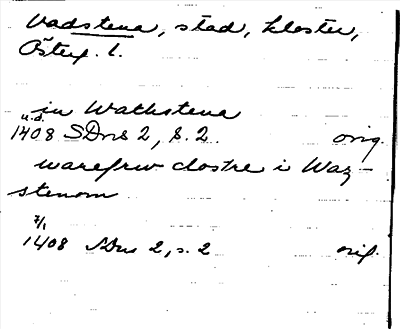 Vadstena, stad, kloster,
Österg. l.
in Wathstena
u.d.
1408 SDns 2, s. 2 orig.
warefrw clostre i Waz-
stenom
7/1
1408 SDns 2, s. 2 orig.